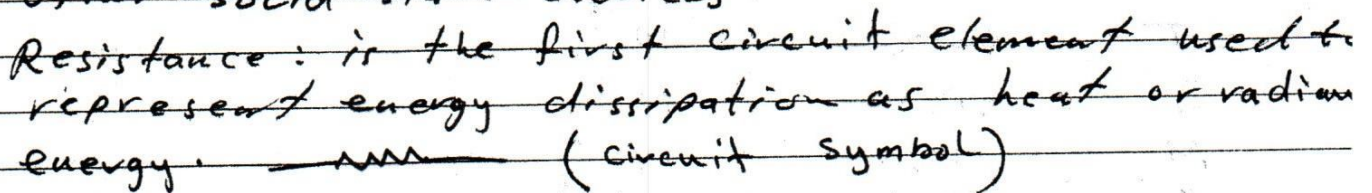 Resistance : is the first circuit element used
represent energy dissipation as heat or
energy. (circuit symbol)